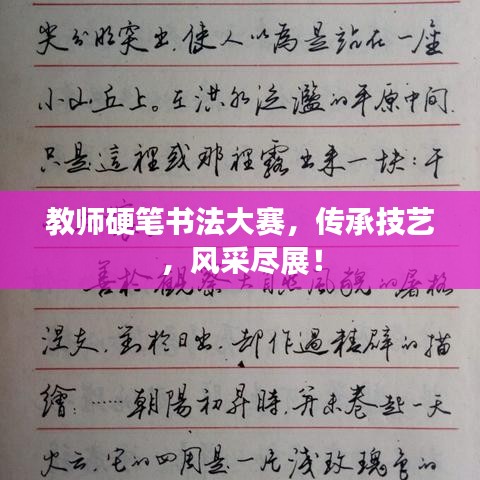 尖分明突出,使人以為是站在一座
小山丘上。在洪水泛濫的平原中间,
只是這裡或那裡露出来一块:干
教师硬笔书法大赛,传承技艺
,风采尽展!
善於觀察大自然風貌的屠格
涅夫,對於日出,却作過精辟的描
繪:……朝陽初昇時,并未卷起一天
火云,它的四周是一片浅玫瑰色的